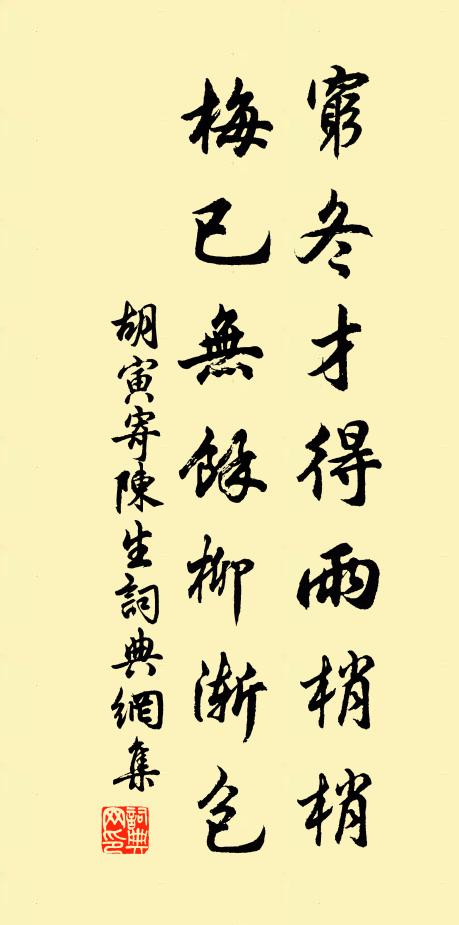 窮冬才得雨梢梢
梅已無餘柳漸包
胡寅寄陳生詞典網集
詞典网印